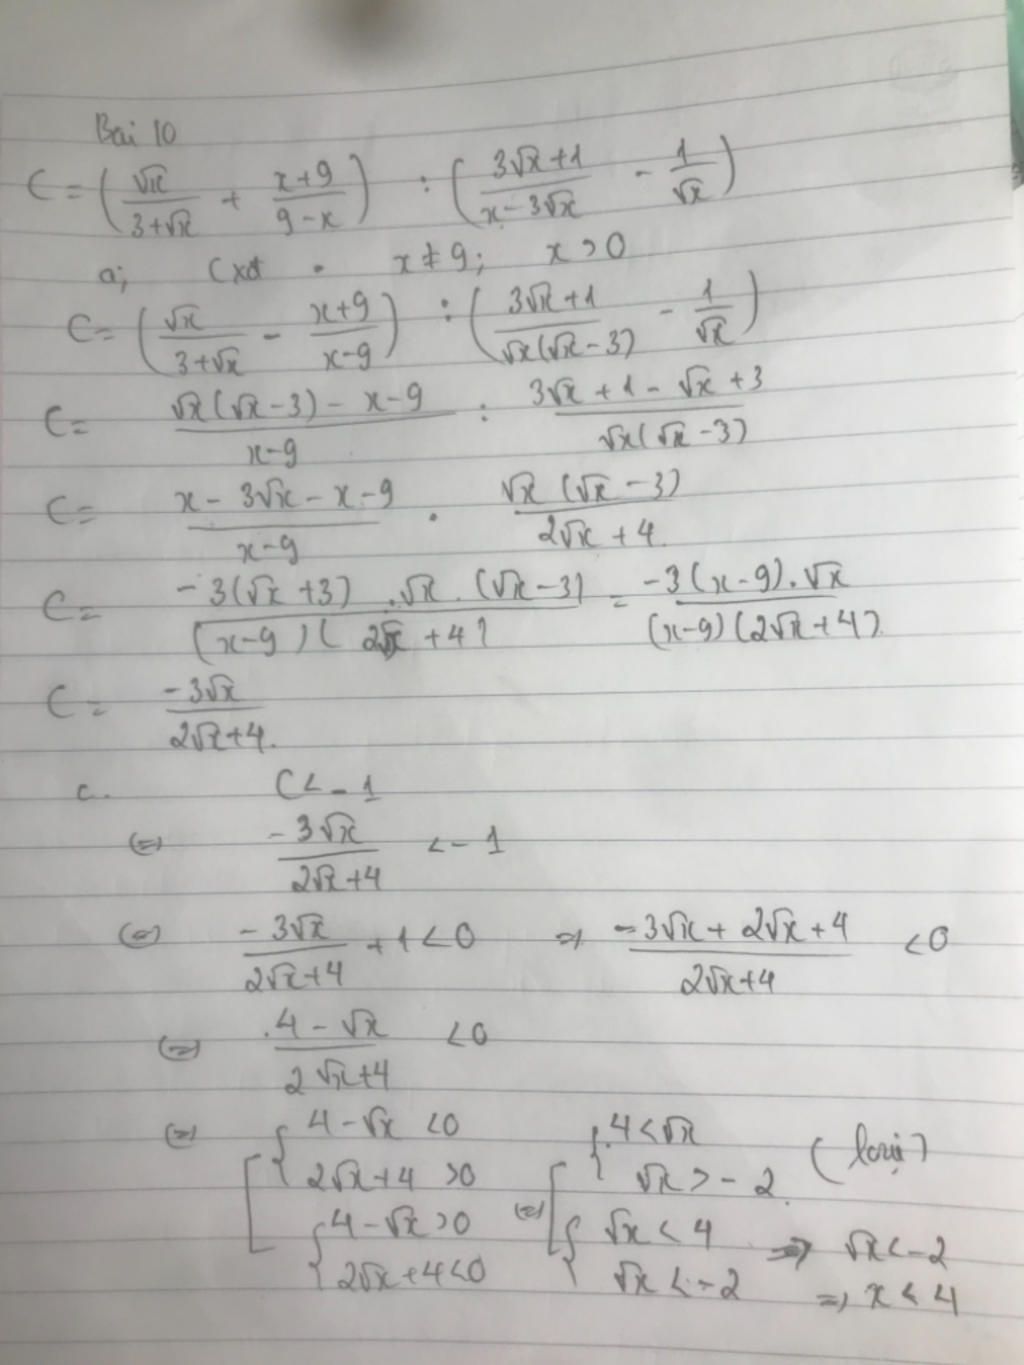 Bài 10
C = (√x/(3+√x) + (x+9)/(9-x)) : ((3√x+1)/(x-3√x) - 1/√x)
a; Cxđ . x ≠ 9; x > 0
C = (√x/(3+√x) - (x+9)/(x-9)) : ((3√x+1)/(√x(√x-3)) - 1/√x)
C = (√x(√x-3) - x-9)/(x-9) : (3√x+1-√x+3)/(√x(√x-3))
C = (x-3√x-x-9)/(x-9) . (√x(√x-3))/(2√x+4)
C = (-3(√x+3).√x.(√x-3))/((x-9)(2√x+4)) = (-3(x-9).√x)/((x-9)(2√x+4))
C = -3√x/(2√x+4).
c. C < -1
(=) -3√x/(2√x+4) < -1
(=) -3√x/(2√x+4) + 1 < 0 => (-3√x+2√x+4)/(2√x+4) < 0
(=) (4-√x)/(2√x+4) < 0
(=) [ { 4-√x < 0 { 4 < √x (loại)
2√x+4 > 0 √x > -2
{ 4-√x > 0 (=) [ { √x < 4 => √x < -2
2√x+4 < 0 √x < -2 => x < 4